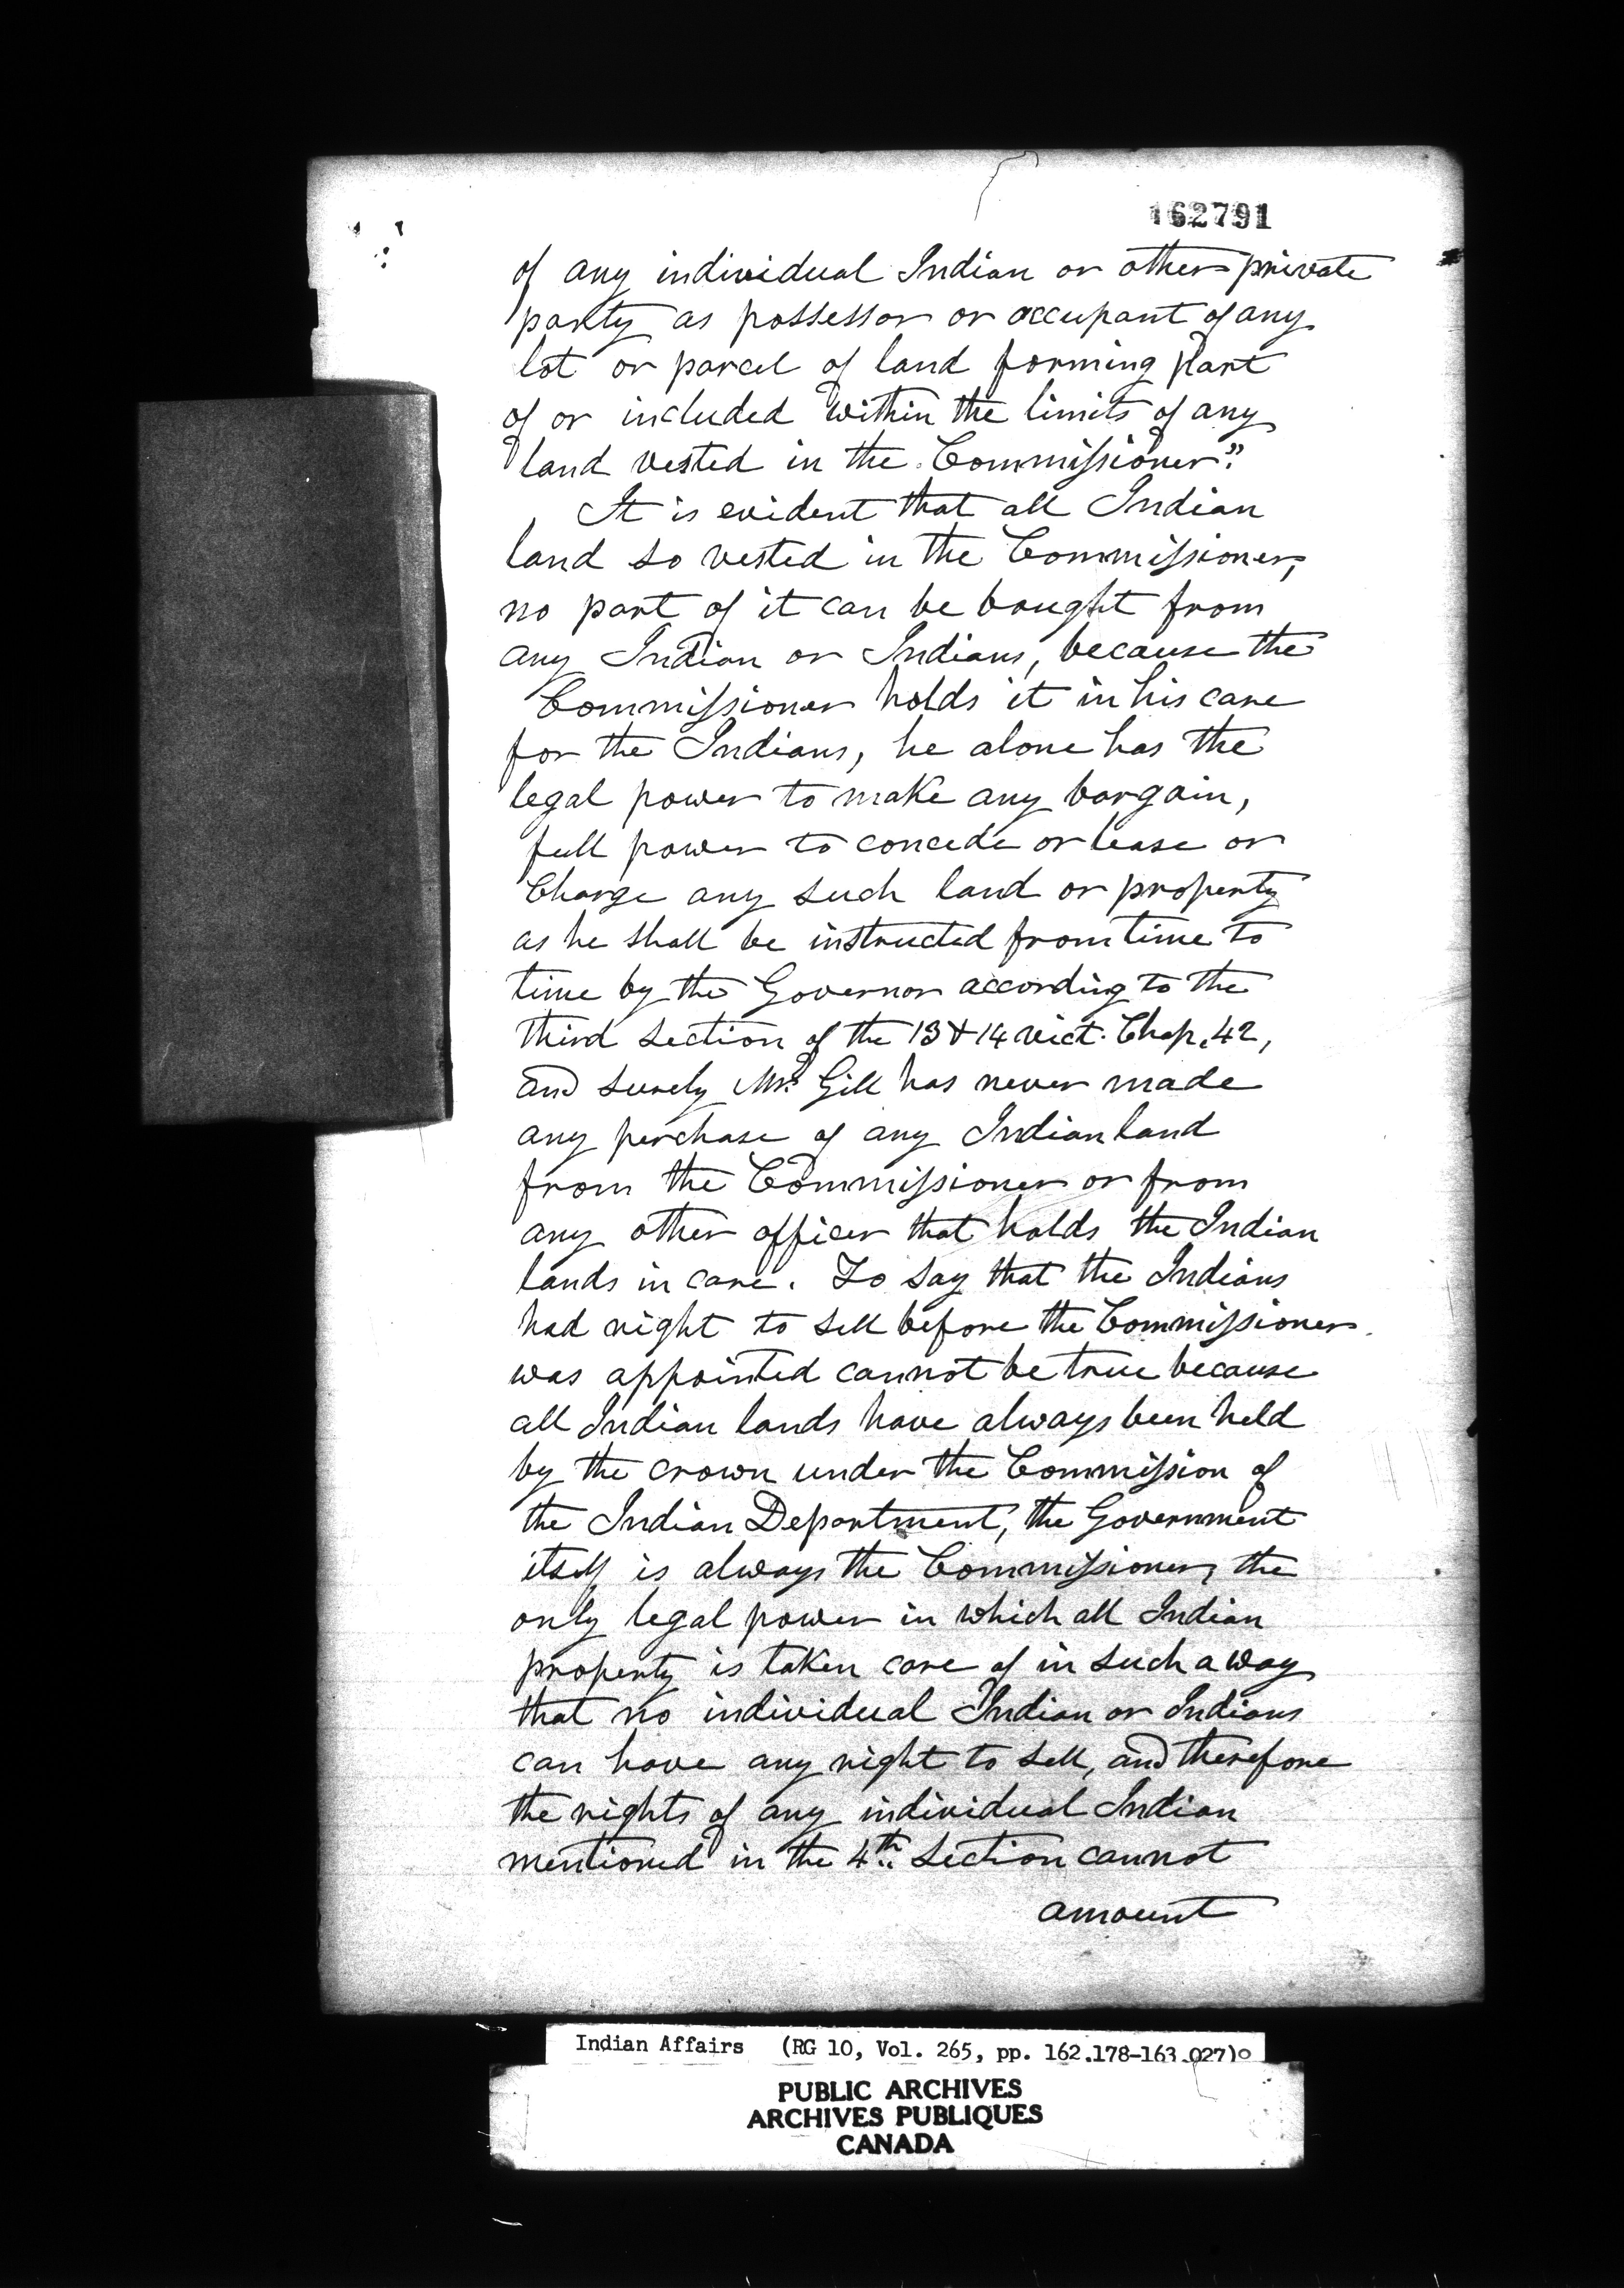 162791
of any individual Indian or other private
party as possessor or occupant of any
lot or parcel of land forming part
of or included within the limits of any
land vested in the Commissioner."
It is evident that all Indian
land so vested in the Commissioner,
no part of it can be bought from
any Indian or Indians, because the
Commissioner holds it in his care
for the Indians, he alone has the
legal power to make any bargain,
full power to concede or lease or
Charge any such land or property
as he shall be instructed from time to
time by the Governor according to the
third section of the 13 & 14 Vict. Chap. 42,
and surely Mr. Gill has never made
any perchase of any Indian land
from the Commissioner or from
any other officer that holds the Indian
lands in care. To say that the Indians
had right to sell before the Commissioner
was appointed cannot be true because
all Indian lands have always been held
by the crown under the Commission of
the Indian Department, the Government
itself is always the Commissioner, the
only legal power in which all Indian
property is taken care of in such a way
that no individual Indian or Indians
can have any right to sell, and therefore
the rights of any individual Indian
mentioned in the 4th section cannot
amount
Indian Affairs (RG 10, Vol. 265, pp. 162.178-163.027)
PUBLIC ARCHIVES
ARCHIVES PUBLIQUES
CANADA